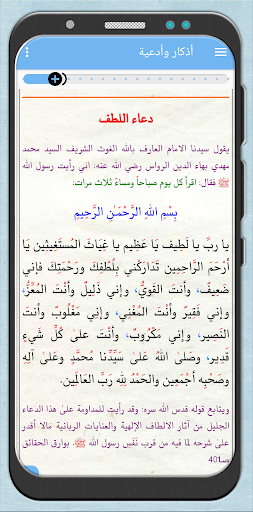 أذكار وأدعية
دعاء اللطف
يقول سيدنا الامام العارف بالله الغوث الشريف السيد محمد
مهدي بهاء الدين الرواس رضي الله عنه: اني رأيت رسول الله
ﷺ فقال: اقرأ كل يوم صباحاً ومساءً ثلاث مرات:
بِسْمِ اللهِ الرَّحْمٰنِ الرَّحِيمِ
يا ربِّ يا لَطِيف يَا عَظِيم يا غِيَاثَ المُسْتَغِيثِين يَا
أَرْحَمَ الرَّاحِمِين تَدَارَكْنِي بِلُطْفِكَ وَرَحْمَتِكَ فإني
ضَعِيفٌ، وأنتَ القَوِيُّ، وإني ذَلِيلٌ وأَنْتَ المُعِزُّ،
وإني فَقِيرٌ وأَنْتَ المُغْنِي، وإني مَغْلُوبٌ وأنتَ
النَصِير، وإني مَكْرُوبٌ، وأَنْتَ عَلَى كُلِّ شَيْءٍ
قَدِير، وصَلَّى اللهُ عَلَى سَيِّدِنَا مُحَمَّدٍ وعَلَى آلِهِ
وصَحْبِهِ أَجْمَعِين والحَمْدُ لِلهِ رَبِّ العَالَمِين.
ويتابع قوله قدس الله سره: وقد رأيت للمداومة على هذا الدعاء
الجليل من آثار الالطاف الإلهية والعنايات الربانية مالا أقدر
على شرحه لما فيه من قرب نَفَسِ رسول الله ﷺ. بوارق الحقائق
ص401